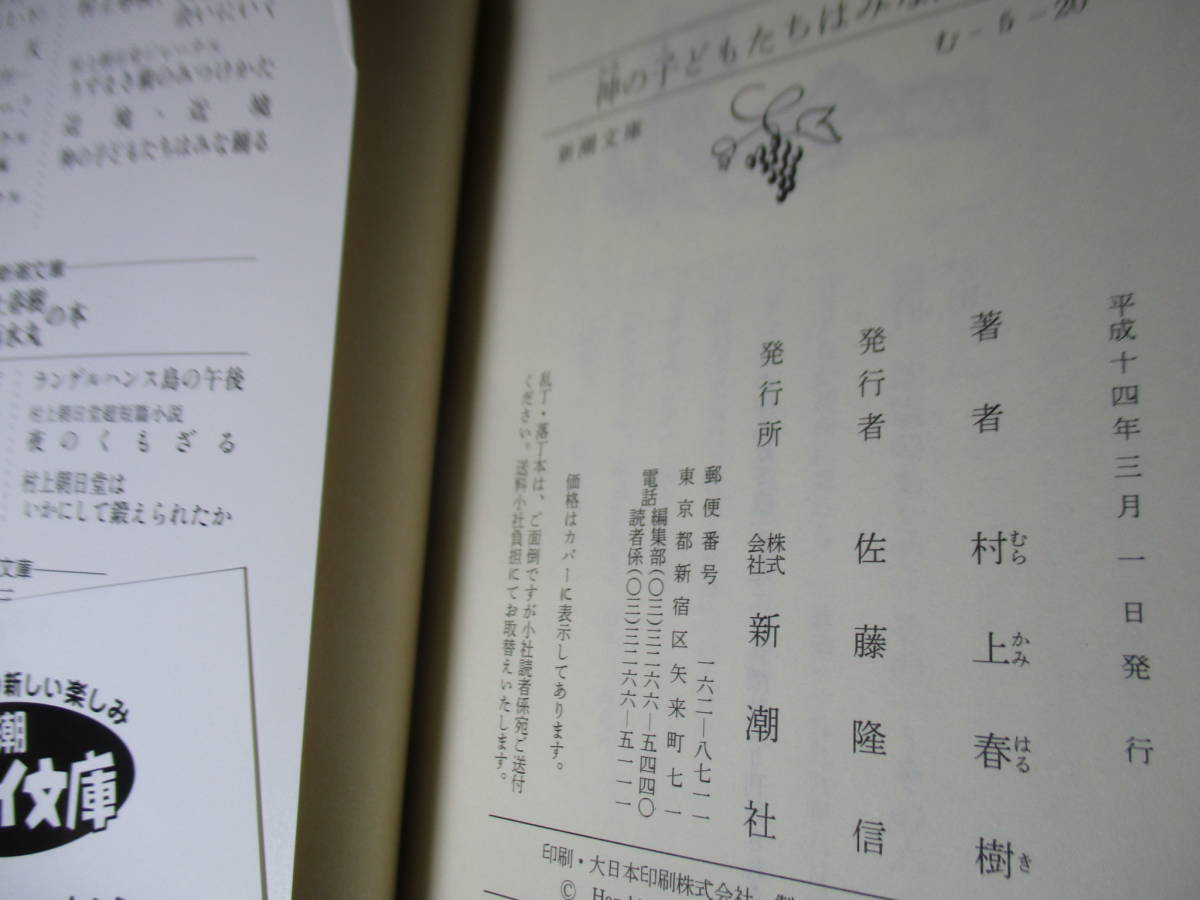 神の子どもたちはみな
新潮文庫
む-5-20
平成十四年三月一日発行
著者 村上春樹
むら かみ はる き
発行者 佐藤隆信
発行所 株式会社 新潮社
郵便番号 一六二―八七一一
東京都新宿区矢来町七一
電話 編集部(〇三)三二六六―五四四〇
読者係(〇三)三二六六―五一一一
価格はカバーに表示してあります。
乱丁・落丁本は、ご面倒ですが小社読者係宛ご送付
ください。送料小社負担にてお取替えいたします。
印刷・大日本印刷株式会社
©
会いにいく
うずまき猫のみつけかた
辺境・近境
神の子どもたちはみな踊る
新潮文庫
春樹
水丸
の本
ランゲルハンス島の午後
村上朝日堂超短篇小説
夜のくもざる
村上朝日堂は
いかにして鍛えられたか
文庫
新しい楽しみ
潮
イ文庫